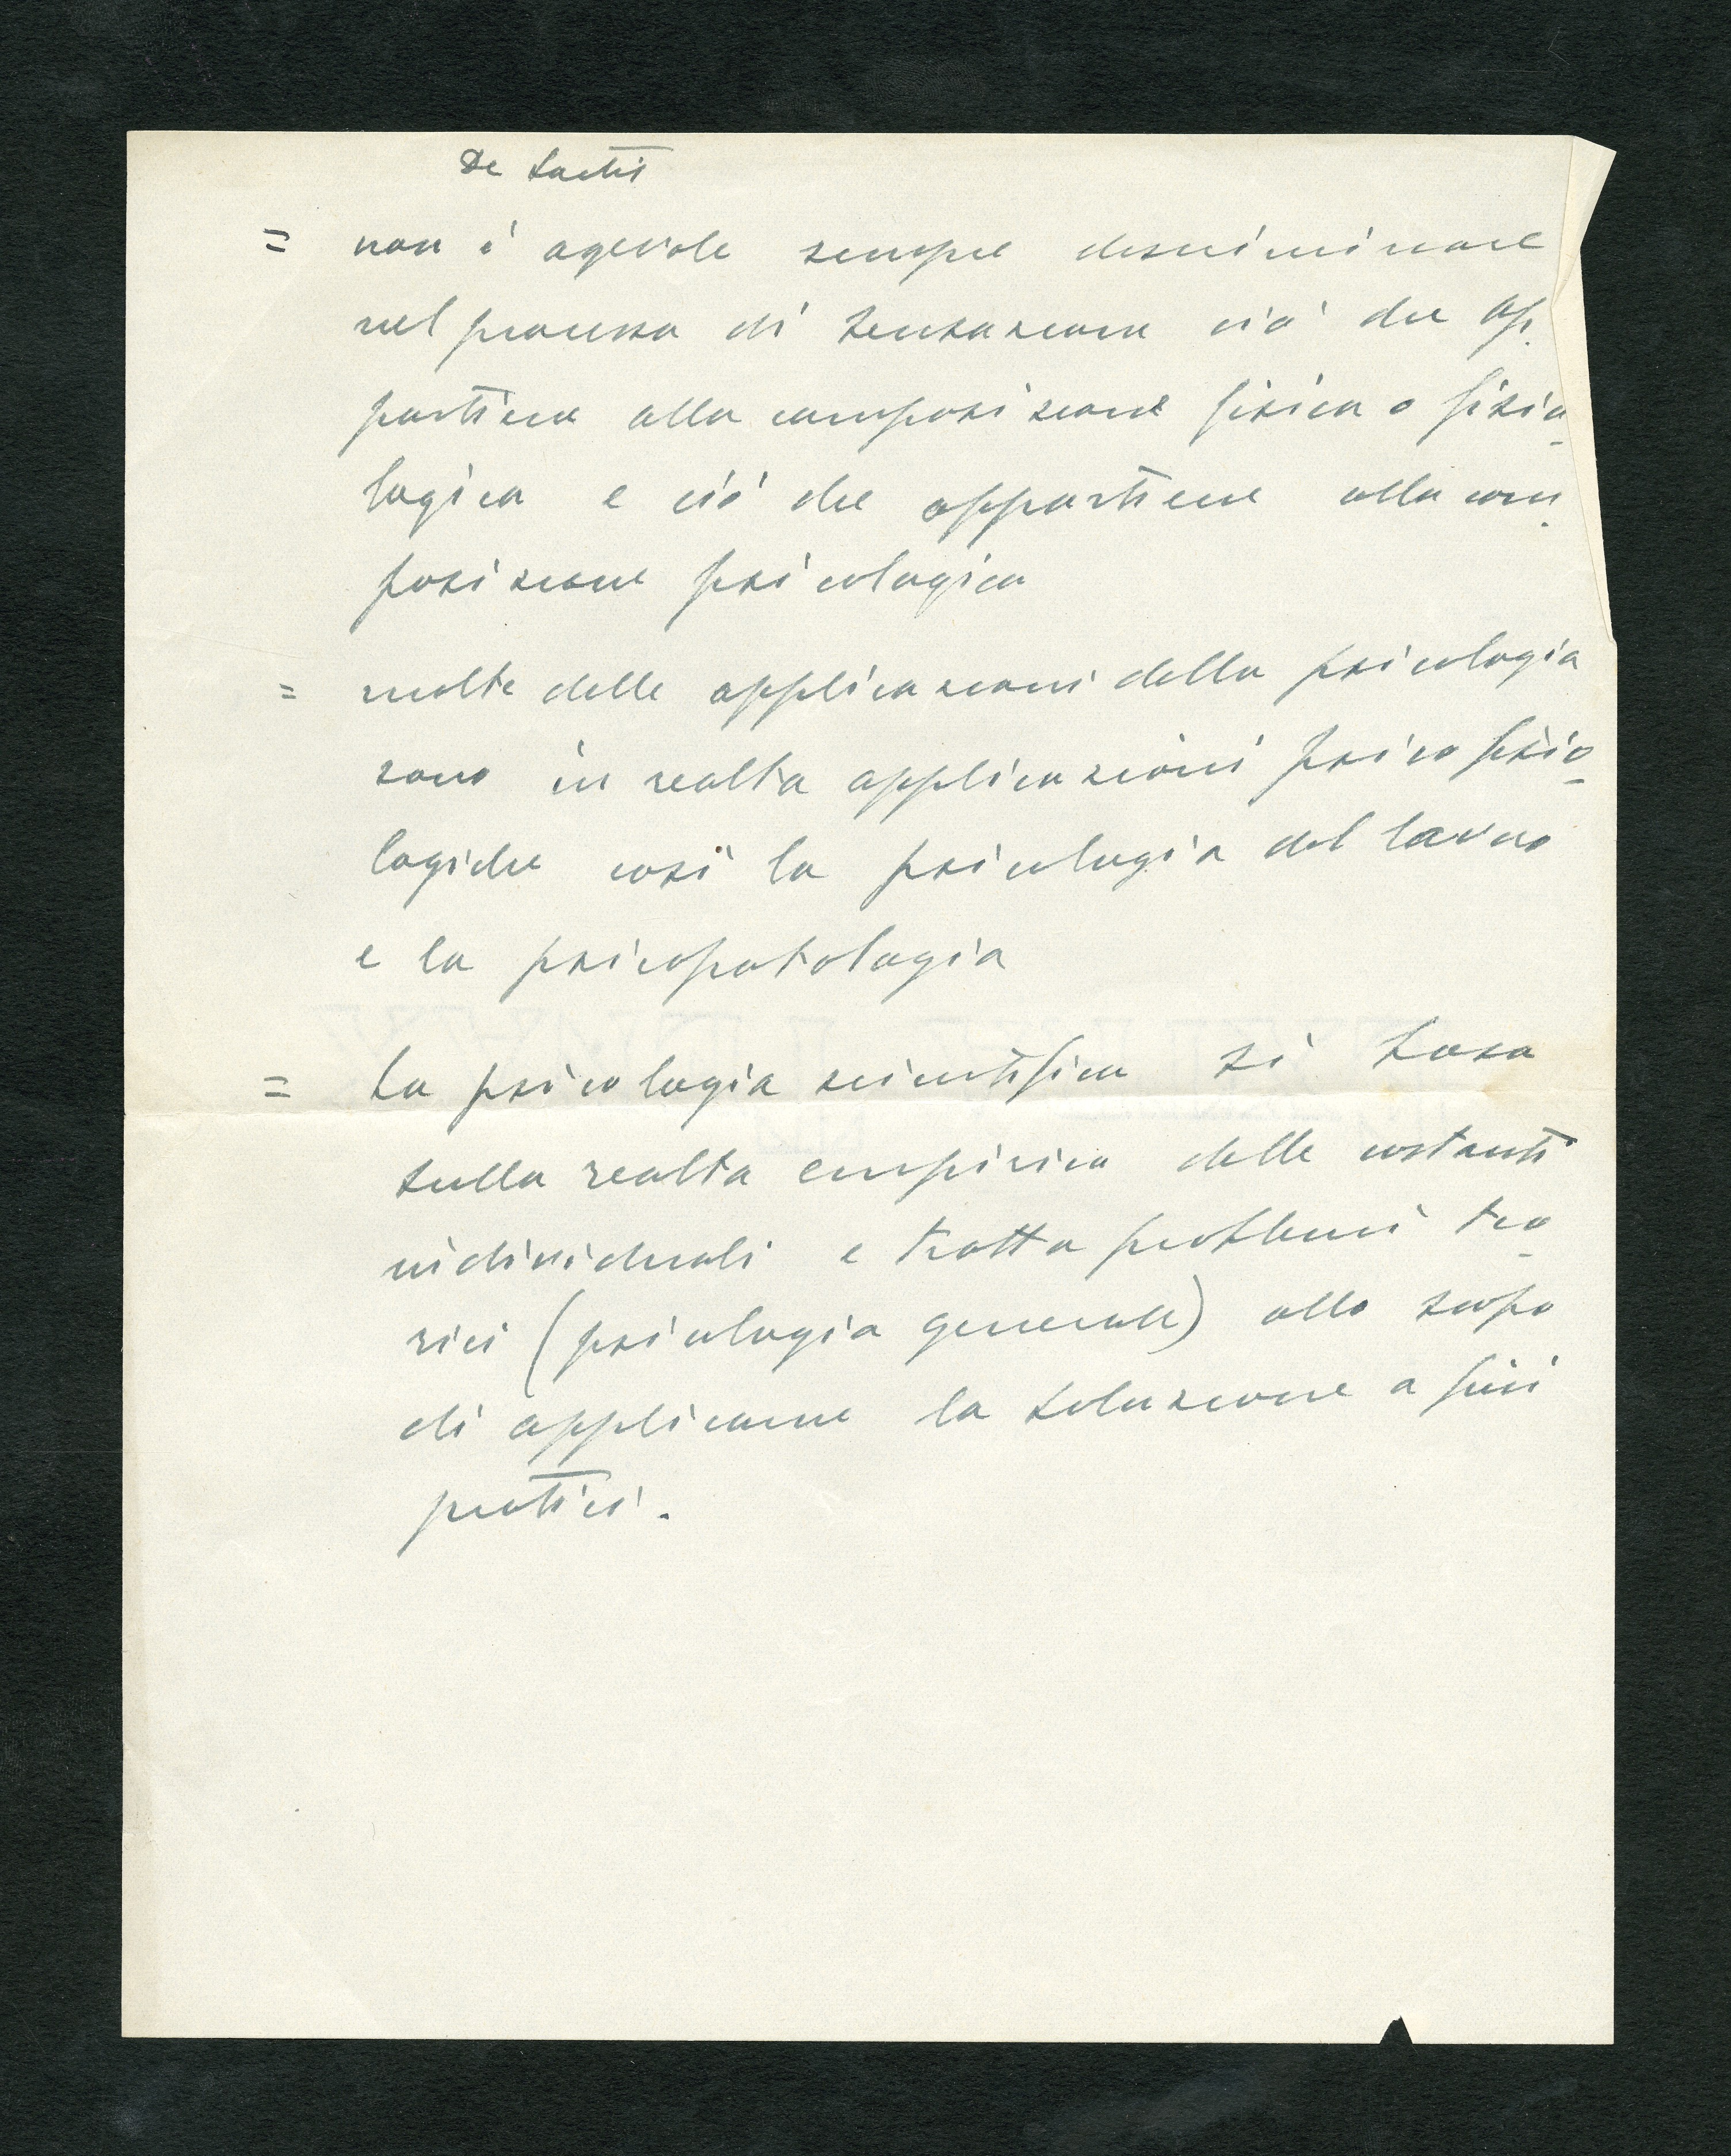 De Sactis
= non è agevole sempre discriminare
nel processo di sensazione ciò che ap.
partiene alla composizione fisica o fisio_
logica e ciò che appartiene alla com.
posizione psicologica
= molte delle applicazioni della psicologia
sono in realtà applicazioni psico fisio_
logiche così la psicologia del lavoro
e la psicopatologia
= La psicologia scientifica si basa
sulla realtà empirica delle costanti
individuali e tratta problemi teo_
rici (psicologia generale) allo scopo
di applicarne la soluzione a fini
pratici.